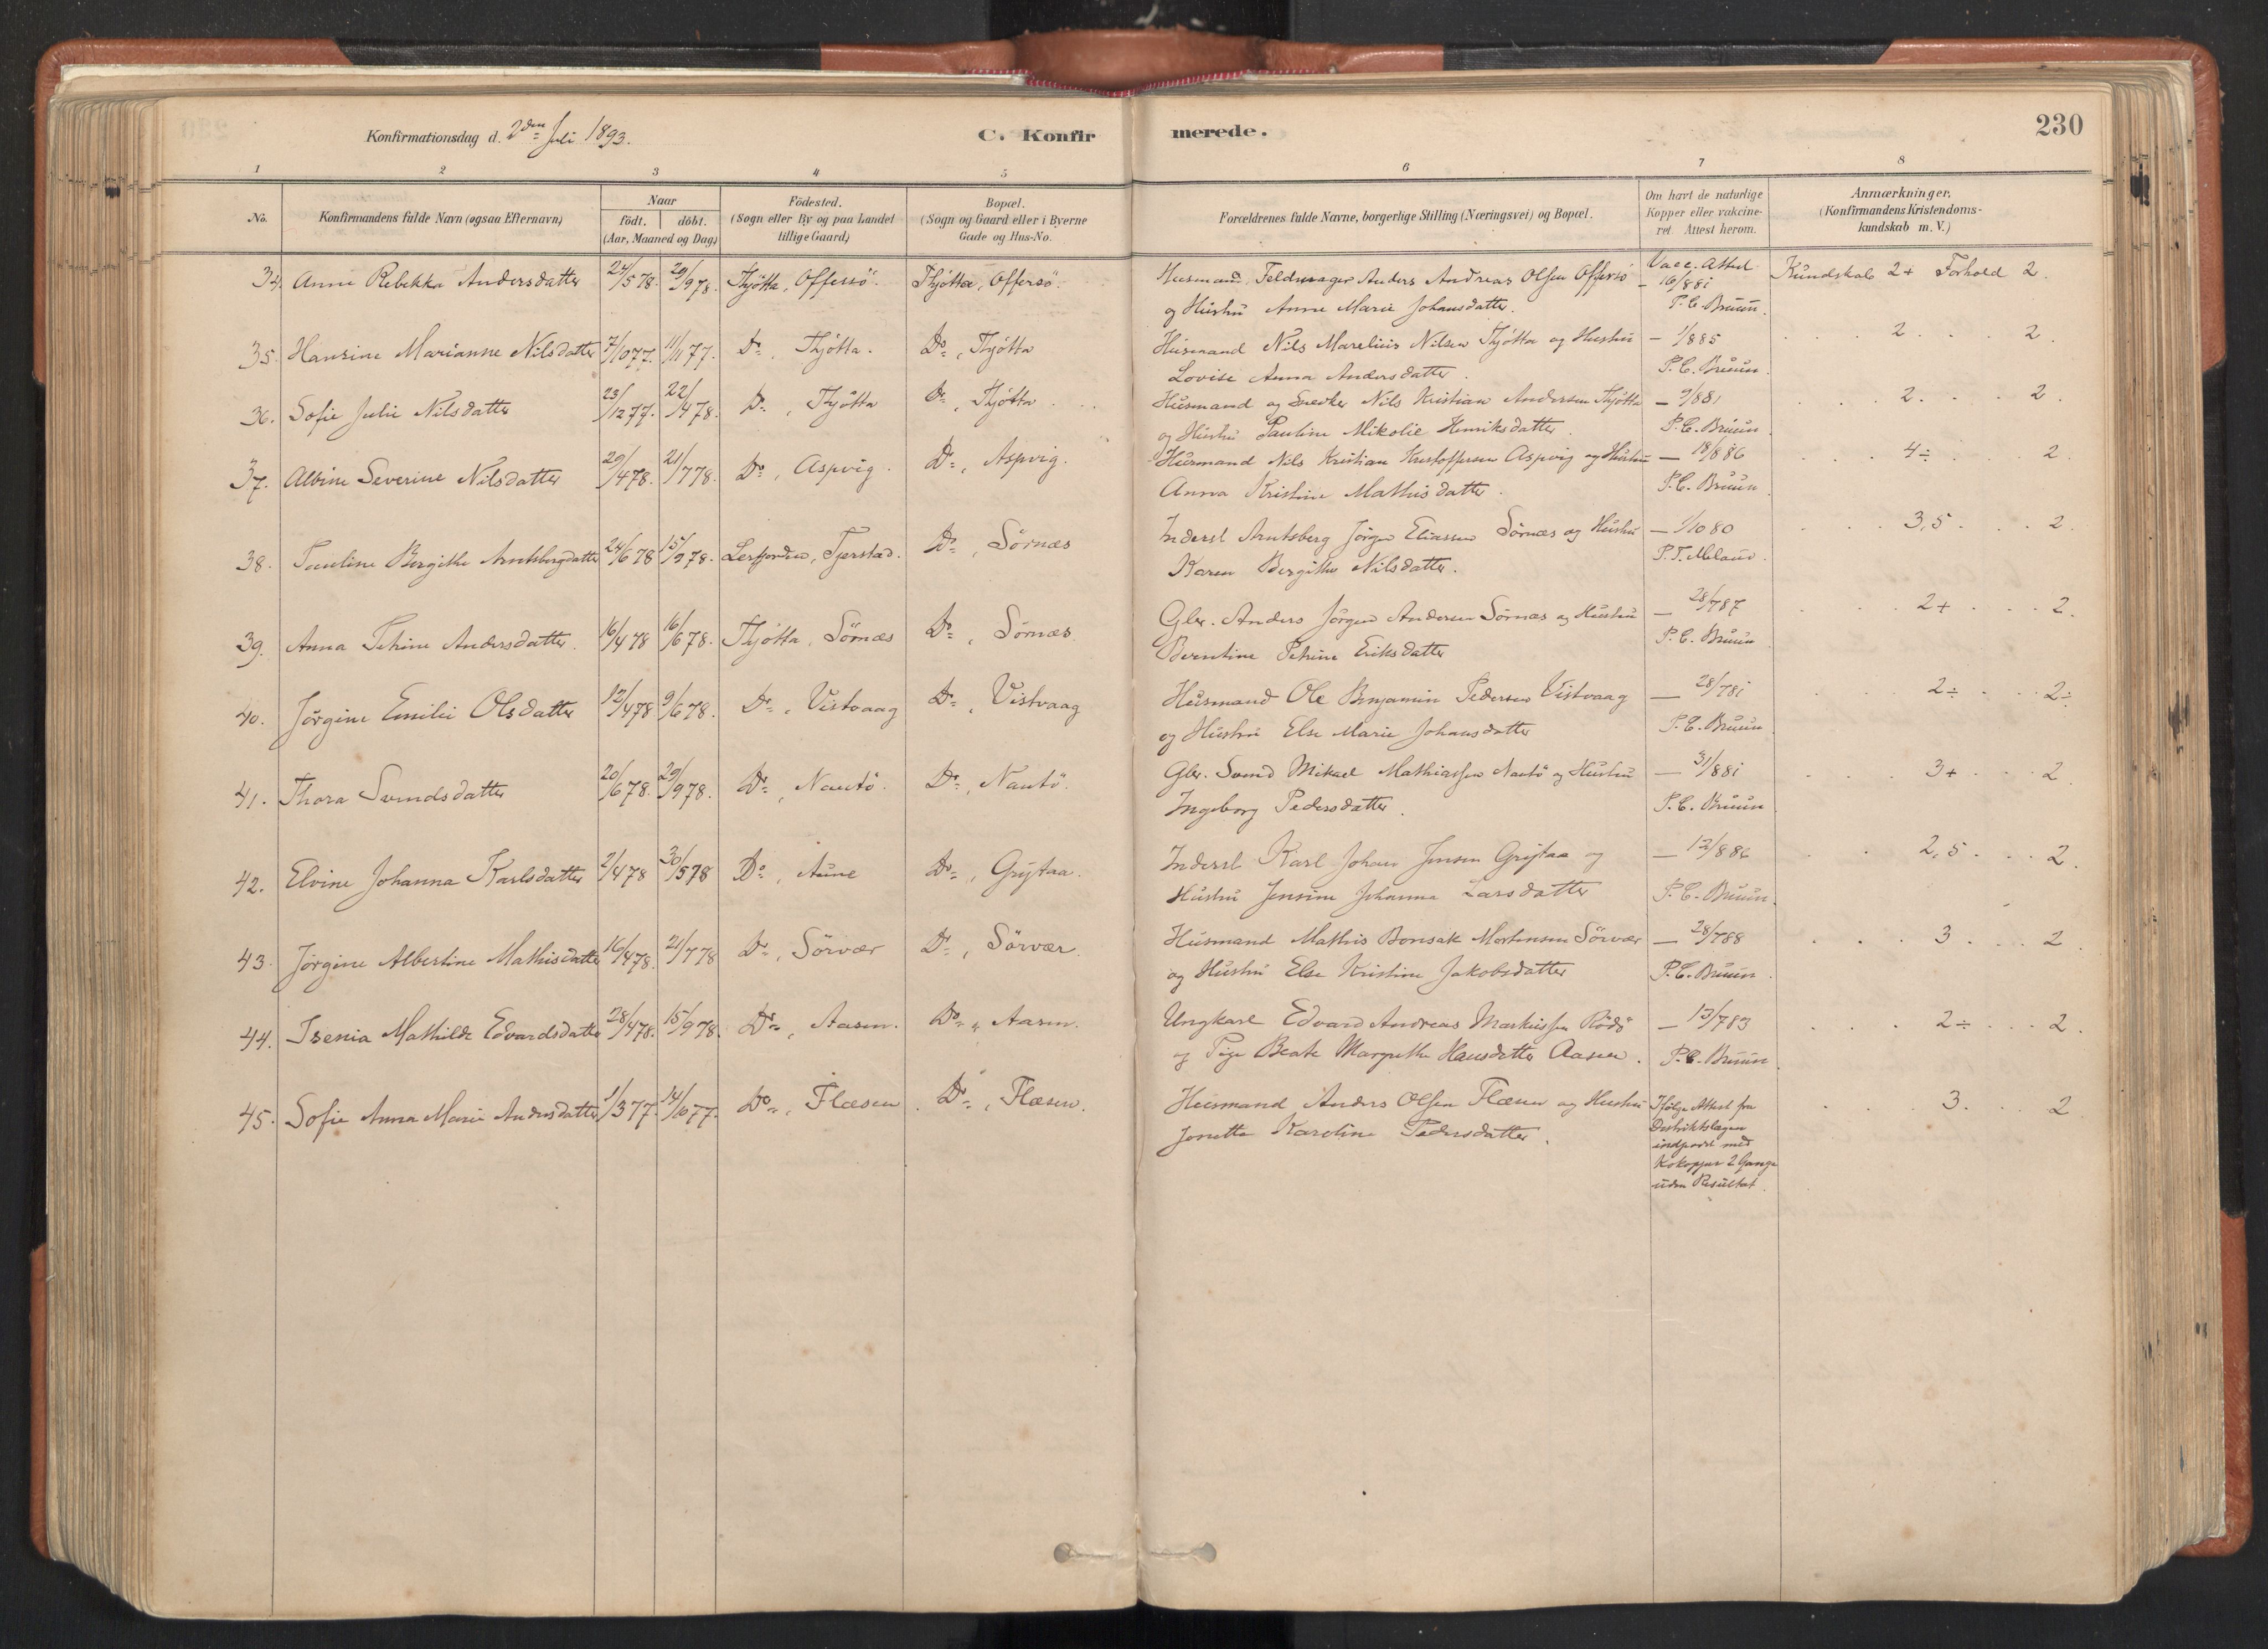 Konfirmationsdag d. 2den Juli 1893.
C. Konfir
merede.
230
1 2 3 4 5 6 7 8
No.
Konfirmandens fulde Navn (ogsaa Efternavn)
Naar
födt. döbt.
(Aar, Maaned og Dag)
Födested.
(Sogn eller By og paa Landet
tillige Gaard)
Bopæl.
(Sogn og Gaard eller i Byerne
Gade og Hus-No.
Forældrenes fulde Navne, borgerlige Stilling (Næringsvei) og Bopæl.
Om havt de naturlige
Kopper eller vakcine-
ret. Attest herom.
Anmærkninger.
(Konfirmandens Kristendoms-
kundskab m. V.)
34. Anne Rebekka Andersdatter 24/5 78. 29/9 78. Thjötta, Offersö. Thjötta, Offersö. Husmand, Anders Andreas Olsen Offersö Vacc. Attest Kundskab 2+ Forhold 2.
og Hustru Anne Marie Johansdatter. — 16/8 81 P. C. Bruun.
35. Hansine Marianne Nilsdatter 7/10 77. 11/11 77. Do, Thjötta. Do, Thjötta Husmand Nils Marelius Nilsen Thjötta og Hustru — 1/8 85 2. 2.
Lovise Anna Andersdatter. P. C. Bruun.
36. Sofie Julie Nilsdatter 23/12 77. 22/4 78. Do, Thjötta Do, Thjötta Husmand og Snedker Nils Kristian Andersen Thjötta — 9/8 81 2. 2.
og Hustru Pauline Nikolie Henriksdatter. P. C. Bruun.
37. Albine Severine Nilsdatter 20/4 78. 21/7 78. Do, Aspvig. Do, Aspvig. Husmand Nils Kristian Kristoffersen Aspvig og Hustru — 18/8 86 4÷ 2.
Anna Kristine Mathisdatter. P. C. Bruun.
38. Pauline Bergithe Arntsbergdatter 24/6 78 15/9 78. Leirfjorden, Tjerstad. Do, Sörnæs Inderst Arntsberg Jörgen Eliassen Sörnæs og Hustru — 1/10 80 3,5. 2.
Karen Bergitte Nilsdatter. P. T. Meland.
39. Anna Petrine Andersdatter. 16/4 78 16/6 78. Thjötta, Sörnæs Do, Sörnæs Gbr. Anders Jörgen Andersen Sörnæs og Hustru — 28/7 87 2+ 2.
Berntine Petrine Eriksdatter P. C. Bruun
40. Jörgine Emilie Olsdatter 12/4 78 9/6 78. Do, Vistvaag Do, Vistvaag Husmand Ole Benjamin Pedersen Vistvaag — 28/7 81 2÷ 2÷
og Hustru Else Marie Johansdatter P. C. Bruun
41. Thora Svendsdatter 20/6 78. 29/9 78. Do, Nautö. Do, Nautö. Gbr. Svend Mikael Mathiassen Nautö og Hustru — 31/8 81 3+ 2
Ingeborg Pedersdatter. P. C. Bruun
42. Elvine Johanna Karlsdatter 2/4 78 30/5 78 Do, Aune Do, Grytaa. Inderst Karl Johan Jensen Grytaa og — 12/8 86 2,5. 2.
Hustru Jensine Johanna Larsdatter P. C. Bruun.
43. Jörgine Albertine Mathisdatter 16/4 78. 21/7 78 Do, Sörvær Do, Sörvær. Husmand Mathis Bonsak Mortensen Sörvær — 28/7 88 3. 2.
og Hustru Else Kristine Jakobsdatter P. C. Bruun.
44. Isenia Mathilde Edvardsdatter 28/4 78. 15/9 78. Do, Aasen. Do, Aasen. Ungkarl Edvard Andreas Markussen Rödö — 13/7 83 2÷ 2.
og Pige Beate Margrethe Hansdatter Aasen. P. C. Bruun
45. Sofie Anna Marie Andersdatter 1/3 77. 14/6 77. Do, Flæsen. Do, Flæsen. Husmand Anders Olsen Flæsen og Hustru Ifölge Attest fra 3. 2
Jonette Karoline Pedersdatter. Distriktslægen
indpodet med
Kokopper 2 Gange
uden Resultat.